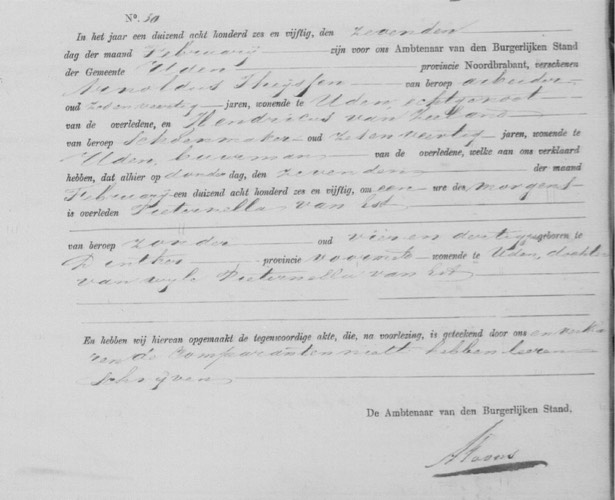 N°. 50
In het jaar een duizend acht honderd zes en vijftig, den zevenden
dag der maand Februarij zijn voor ons Ambtenaar van den Burgerlijken Stand
der Gemeente Uden provincie Noordbrabant, verschenen
Arnoldus Thijssen van beroep arbeider
oud zevenveertig jaren, wonende te Uden, echtgenoot
van de overledene, en Hendricus van
van beroep Schoenmaker oud zevenveertig jaren, wonende te
Uden, buurman van de overledene, welke aan ons verklaard
hebben, dat alhier op donderdag, den zevenden der maand
Februarij een duizend acht honderd zes en vijftig, om een ure des morgens
is overleden Pieternella van Est
van beroep zonder oud vier en dertig geboren te
Dinther provincie voormeld wonende te Uden, dochter
van wijle Pieternella van Est
En hebben wij hiervan opgemaakt de tegenwoordige akte, die, na voorlezing, is geteekend door ons en verkla
ren de Comparanten niet te hebben leeren
schrijven
De Ambtenaar van den Burgerlijken Stand,